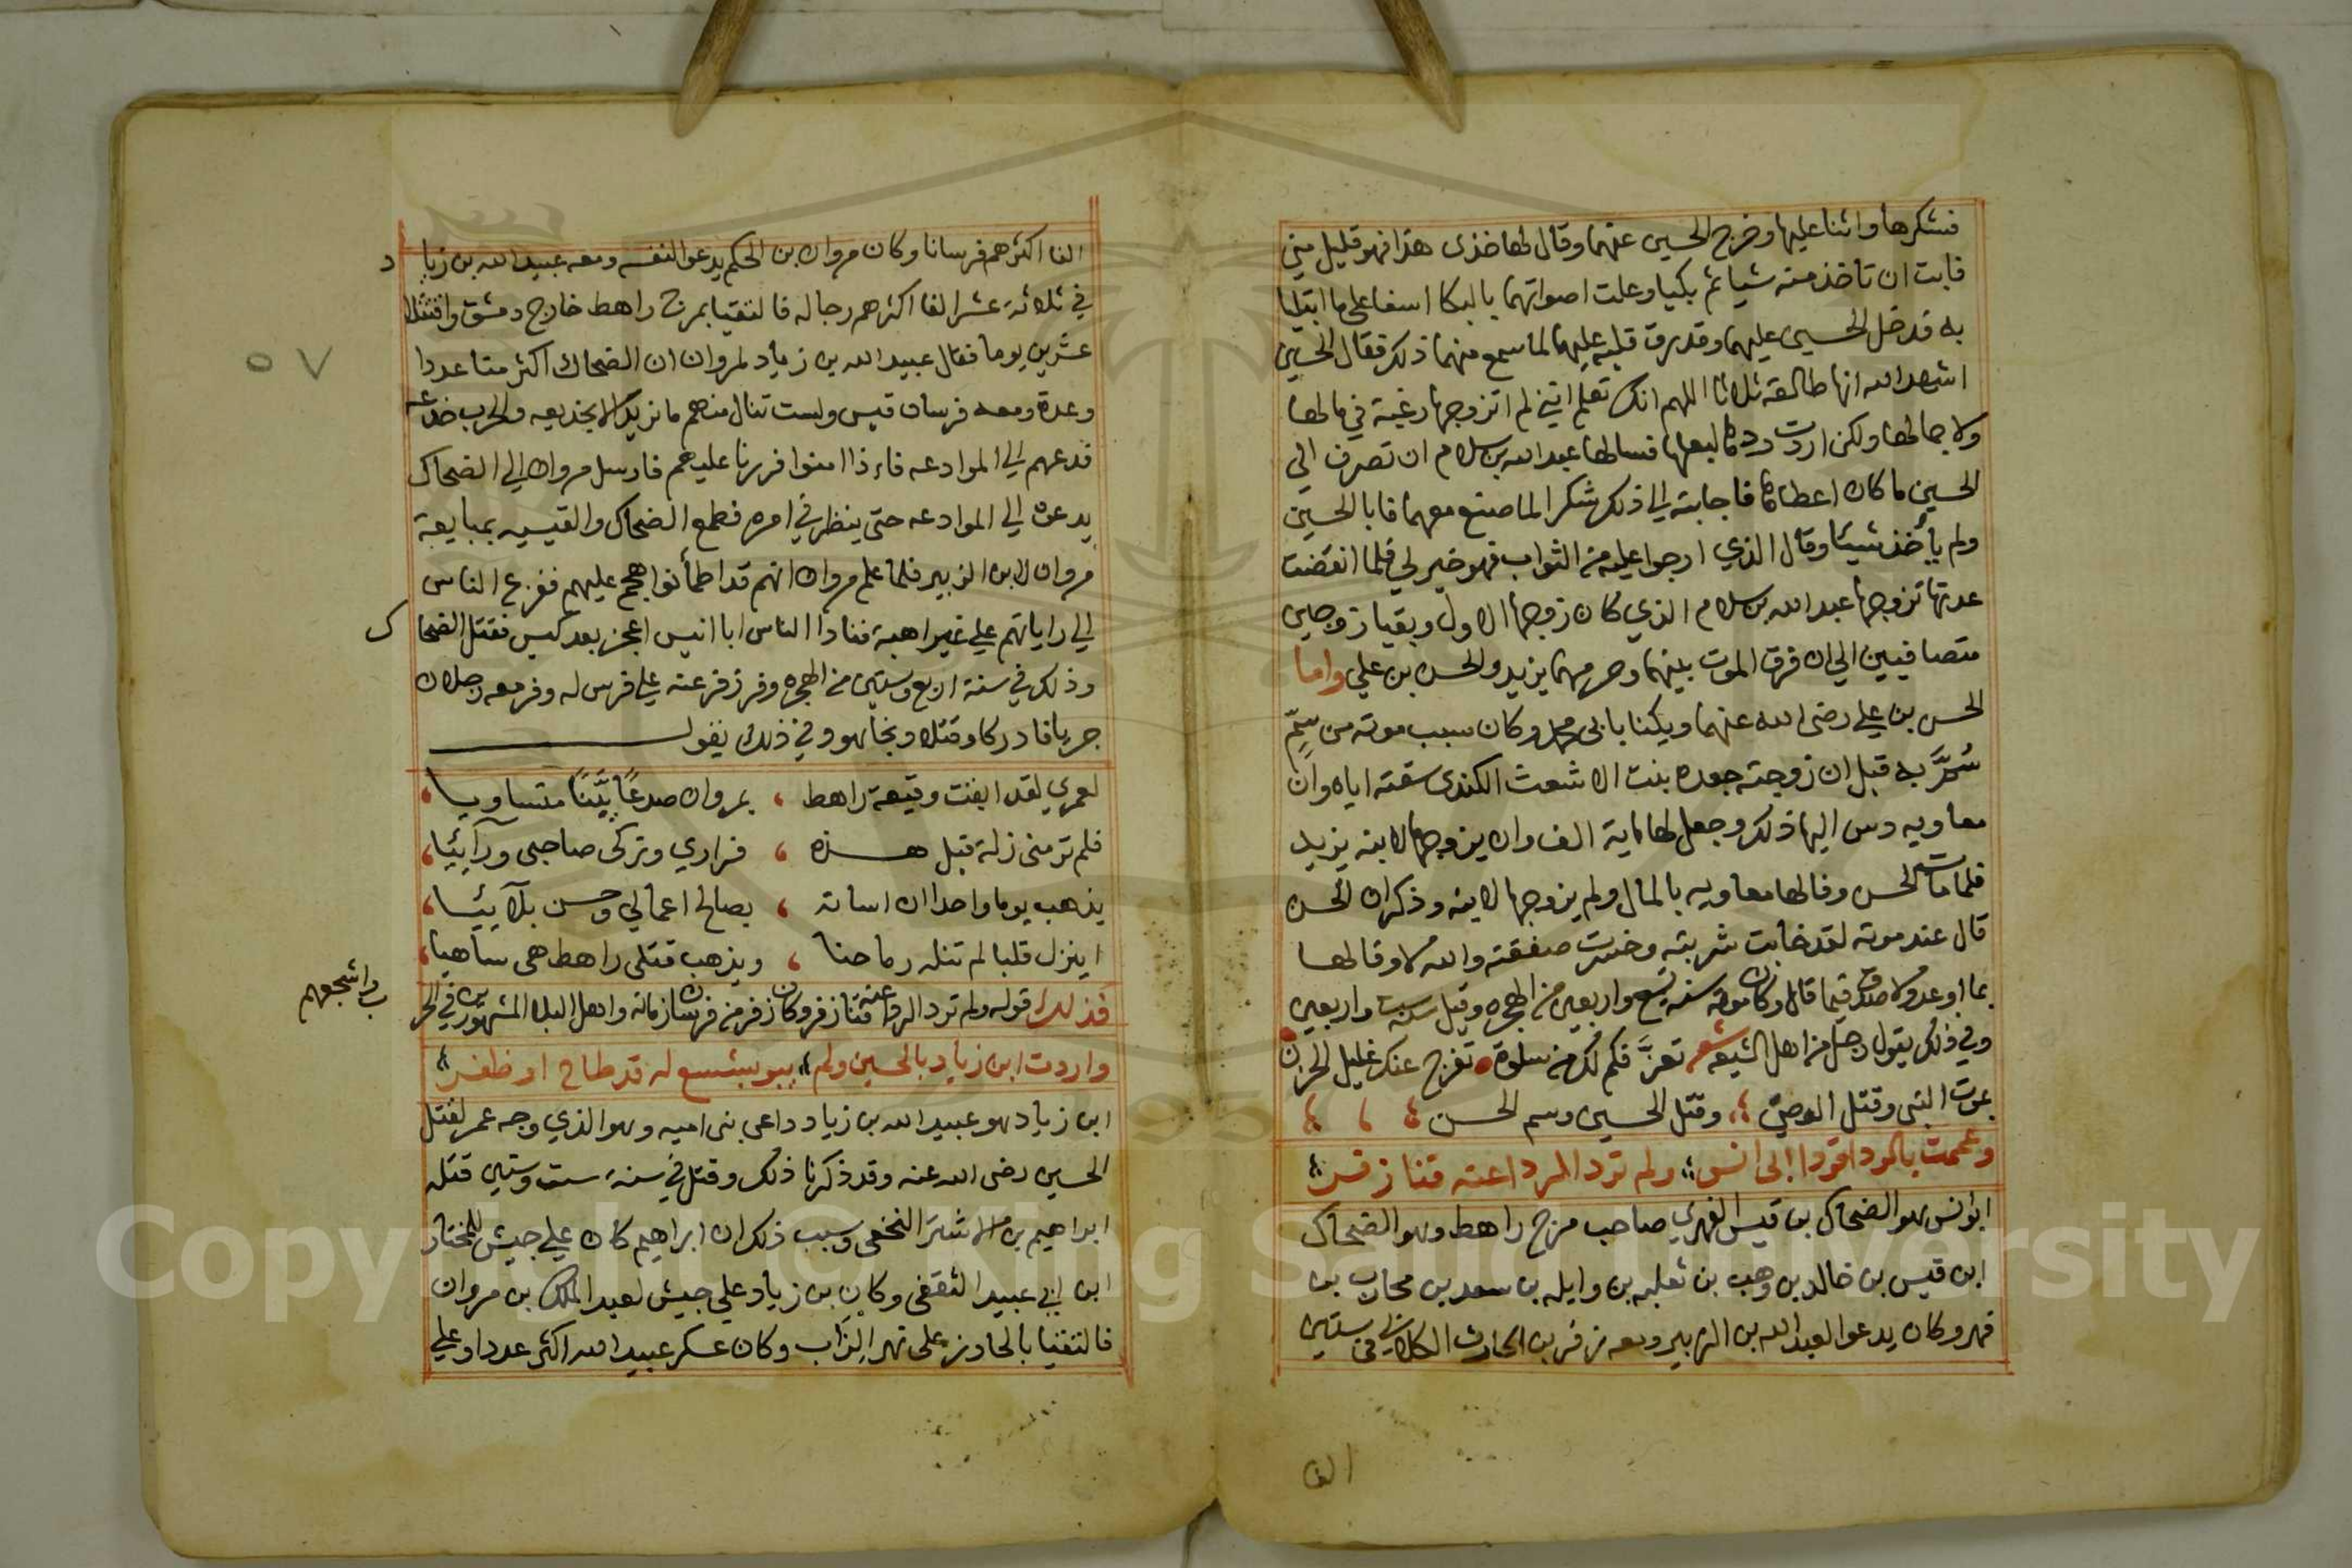 فشكرها واثنا عليها وخرج الحسين عنهما وقال لها خذى هذا فهو قليل مني
فابت ان تاخذ منه شيا ثم بكيا وعلت اصواتهما بالبكا اسفا على ما ابتليا
به فدخل الحسين عليهما وقد رق قلبه عليهما لما سمع منهما ذلك فقال الحسين
اشهد الله انها طالقه ثلاثا اللهم انك تعلم اني لم اتزوجها رغبة في مالها
ولا جمالها ولكن اردت ردها لبعلها فسالها عبد الله بن سلام ان تصرف الى
الحسين ما كان اعطاها فاجابته الي ذلك شكرا لما صنع معهما فابا الحسين
ولم يأخذ شيئا وقال الذي ارجوا عليه من الثواب فهو خير لي فلما انقضت
عدتها تزوجها عبد الله بن سلام الذي كان زوجها الاول وبقيا زوجين
متصافيين الي ان فرق الموت بينهما وحرمهما يزيد والحسن بن علي واما
الحسن بن علي رضى الله عنهما ويكنا بابى محمد وكان سبب موته من سم
سمَّ به قبل ان زوجته جعده بنت الاشعث الكندى سقته اياه وان
معاويه دس اليها ذلك وجعل لها ماية الف وان يزوجها لابنه يزيد
فلما مات الحسن وفا لها معاويه بالمال ولم يزوجها لابنه وذكر ان الحسن
قال عند موته لقد خابت شربته وخسرت صفقته والله لا وفا لها
بما اوعد ولا صدق فيما قال وكان موته سنه تسع واربعين من الهجره وقيل سنه ست واربعين
وفي ذلك يقول رجل من اهل الشيعه شعر تعزَّ فكم لك من سلوة تفرج عنك غليل الحزن
بموت النبى وقتل الوصى وقتل الحسين وسم الحسن
وعممت بالردا فودا ابى انس ولم ترد الردا عنه قنا زفر
ابو انس هو الضحاك بن قيس الفهري صاحب مرج راهط وهو الضحاك
ابن قيس بن خالد بن وهب بن ثعلبه بن وايله بن سعد بن محارب بن
فهر وكان يدعوا لعبد الله بن الزبير ومعه زفر بن الحارث الكلابى فى ستين
الفا
الفا اكثرهم فرسانا وكان مروان بن الحكم يدعوا لنفسه ومعه عبيد الله بن زياد
في ثلاثة عشر الفا اكثرهم رجاله فالتقيا بمرج راهط خارج دمشق واقتتلا
عشرين يوما فقال عبيد الله بن زياد لمروان ان الضحاك اكثر منا عددا
وعدة ومعه فرسان قيس ولست تنال منهم ما تريد الا بخديعه والحرب خدعه
فدعهم الي الموادعه فاءذا امنوا فررنا عليهم فارسل مروان الي الضحاك
يدعوه الي الموادعه حتى ينظر في امره فطمع الضحاك والقيسيه بمبايعة
مروان لابن الزبير فلما علم مروان انهم قد اطمأنوا هجم عليهم ففزع الناس
الي راياتهم علي غير اهبة فنادا الناس ابا انيس اعجز بعد كيس فقتل الضحاك
وذلك في سنة اربع وستين من الهجره وفر زفر عنه علي فرس له وفر معه رجلان
جريا فادركا وقتلا ونجا هو وفي ذلك يقول
لعمري لقد ابقت وقيعة راهط ، بمروان صدعًا بيّنًا متساويا
فلم تر منى زلة قبل هذه ، فراري وتركى صاحبى ورآئيا
يذهب يوما واحدا ان اساته ، بصالح اعمالي وحسن بلآئيا
اينزل قلبا لم تنله رماحنا ، ويذهب قتلى راهط هى ساهيا
فذلك قوله ولم ترد الردا عنه قنا زفر وكان زفر من فرسان زمانه واهل البلا المشهورين في الحرب واشجعهم
واردت ابن زياد بالحسين ولم يبو بشسع له قد طاح او ظفر
ابن زياد هو عبيد الله بن زياد داعى بنى اميه وهو الذي وجه عمر لقتل
الحسين رضى الله عنه وقد ذكرنا ذلك وقتل في سنة ست وستين قتله
ابراهيم بن الاشتر النخعى وسبب ذلك ان ابراهيم كان علي جيش للمختار
ابن ابي عبيد الثقفى وكان بن زياد علي جيش لعبد الملك بن مروان
فالتقيا بالحاوز على نهر الزاب وكان عسكر عبيد الله اكثر عددا وعلي
٥٧